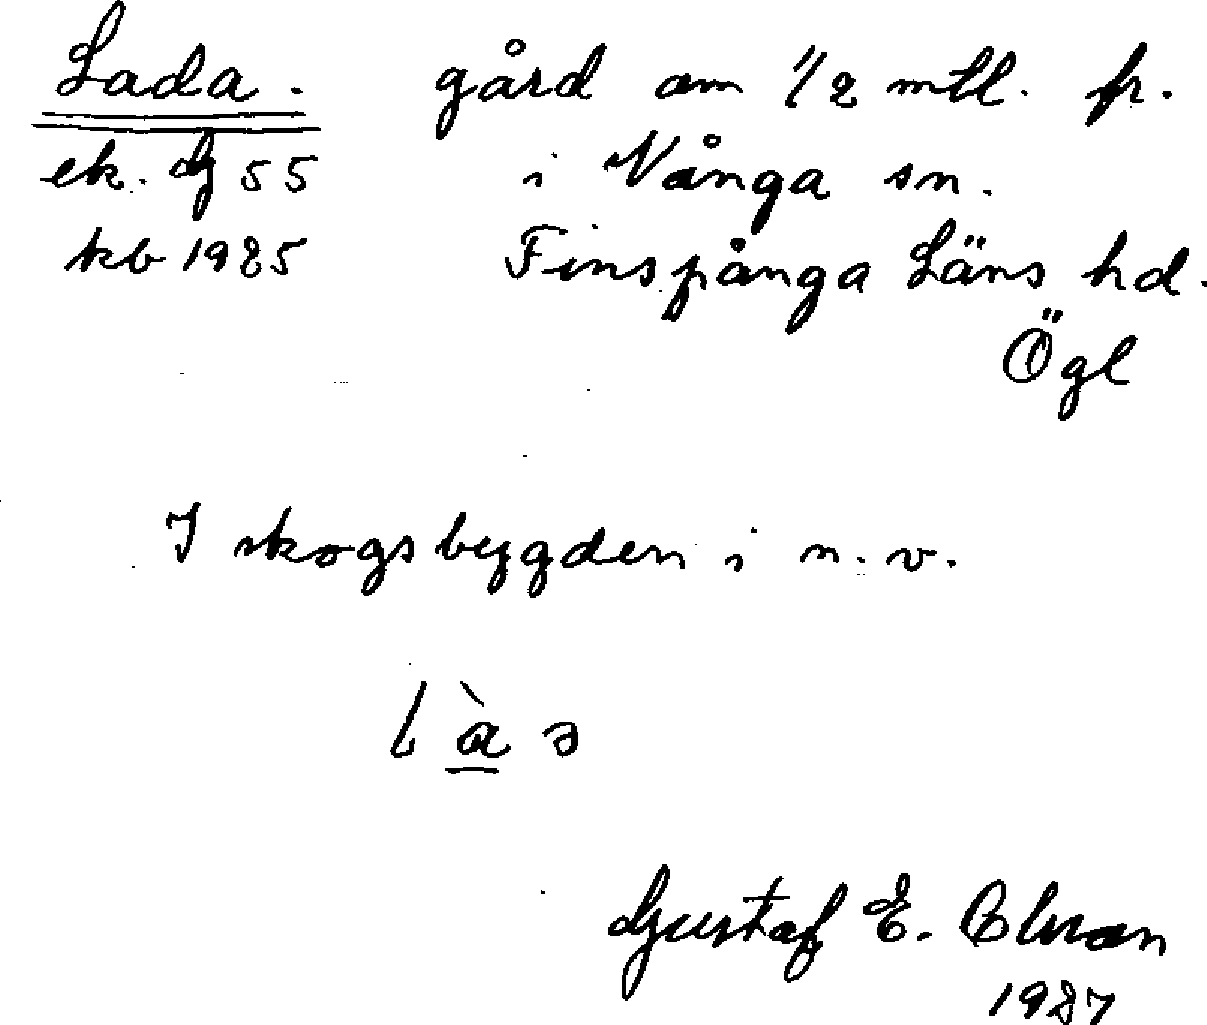 Lada. gård om 1/2 mtl. fr.
ek. G 55 i Vånga sn.
kb 1925 Finspånga Läns hd.
Ögl
I skogsbygden i n.v.
l à ə
Gustaf E.
1927